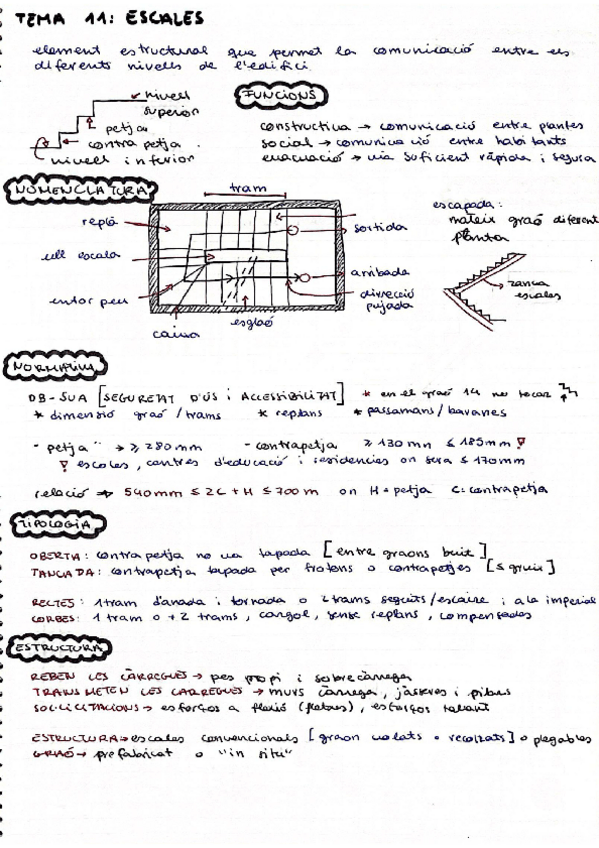 TEMA 11: ESCALES
element estructural que permet la comunicació entre els
diferents nivells de l'edifici.
nivell
superior
petja
contrapetja
nivell inferior
FUNCIONS
constructiva → comunicació entre plantes
social → comunicació entre habitants
evacuació → via suficient ràpida i segura
NOMENCLATURA
tram
replà
ull escala
caixa
esglaó
sortida
arribada
direcció
pujada
escapada:
mateix graó diferent
planta
zanca
escales
NORMATIVA
DB-SUA [SEGURETAT D'ÚS i ACCESSIBILITAT] * en el graó 14 no tocar
* dimensió graó/trams * replans * passamans/baranes
- petja → ≥ 280mm - contrapetja ≥ 130mm ≤ 185mm
escoles, centres d'educació i residencies on sera ≤ 170mm
relació → 540mm ≤ 2C + H ≤ 700m on H = petja C: contrapetja
TIPOLOGIA
OBERTA: contrapetja no va tapada [entre graons buit]
TANCADA: contrapetja tapada per frotons o contrapetjes
RECTES: 1 tram d'anada i tornada o 2 trams seguits/escaire i a la imperial
CORBES: 1 tram o +2 trams, cargol, sense replans, compensades
ESTRUCTURA
REBEN LES CÀRREGUES → pes propi i sobrecàrrega
TRANSMETEN LES CARREGUES → murs càrrega, jàsseres i pilars
SOL·LICITACIONS → esforços a flexió (flectors), esforços tallant
ESTRUCTURA → escales convencionals [graon volats o recolzats] o plegables
GRAÓ → prefabricat o "in situ"